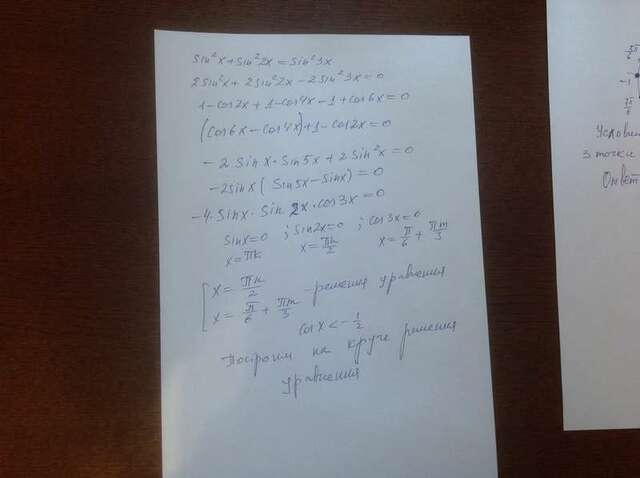 sin²x + sin²2x = sin²3x
2sin²x + 2sin²2x - 2sin²3x = 0
1 - cos2x + 1 - cos4x - 1 + cos6x = 0
(cos6x - cos4x) + 1 - cos2x = 0
- 2 sinx · sin5x + 2 sin²x = 0
- 2sinx ( sin5x - sinx) = 0
- 4 · sinx · sin 2x · cos3x = 0
sinx = 0 ; sin2x = 0 ; cos3x = 0
x = πk x = πk/2 x = π/6 + πm/3
x = πn/2
x = π/6 + πm/3 - решения уравнения
cosx < - 1/2
Построим на круге решения
уравнения
5π/6
7π/6
Услови
3 точки
Ответ